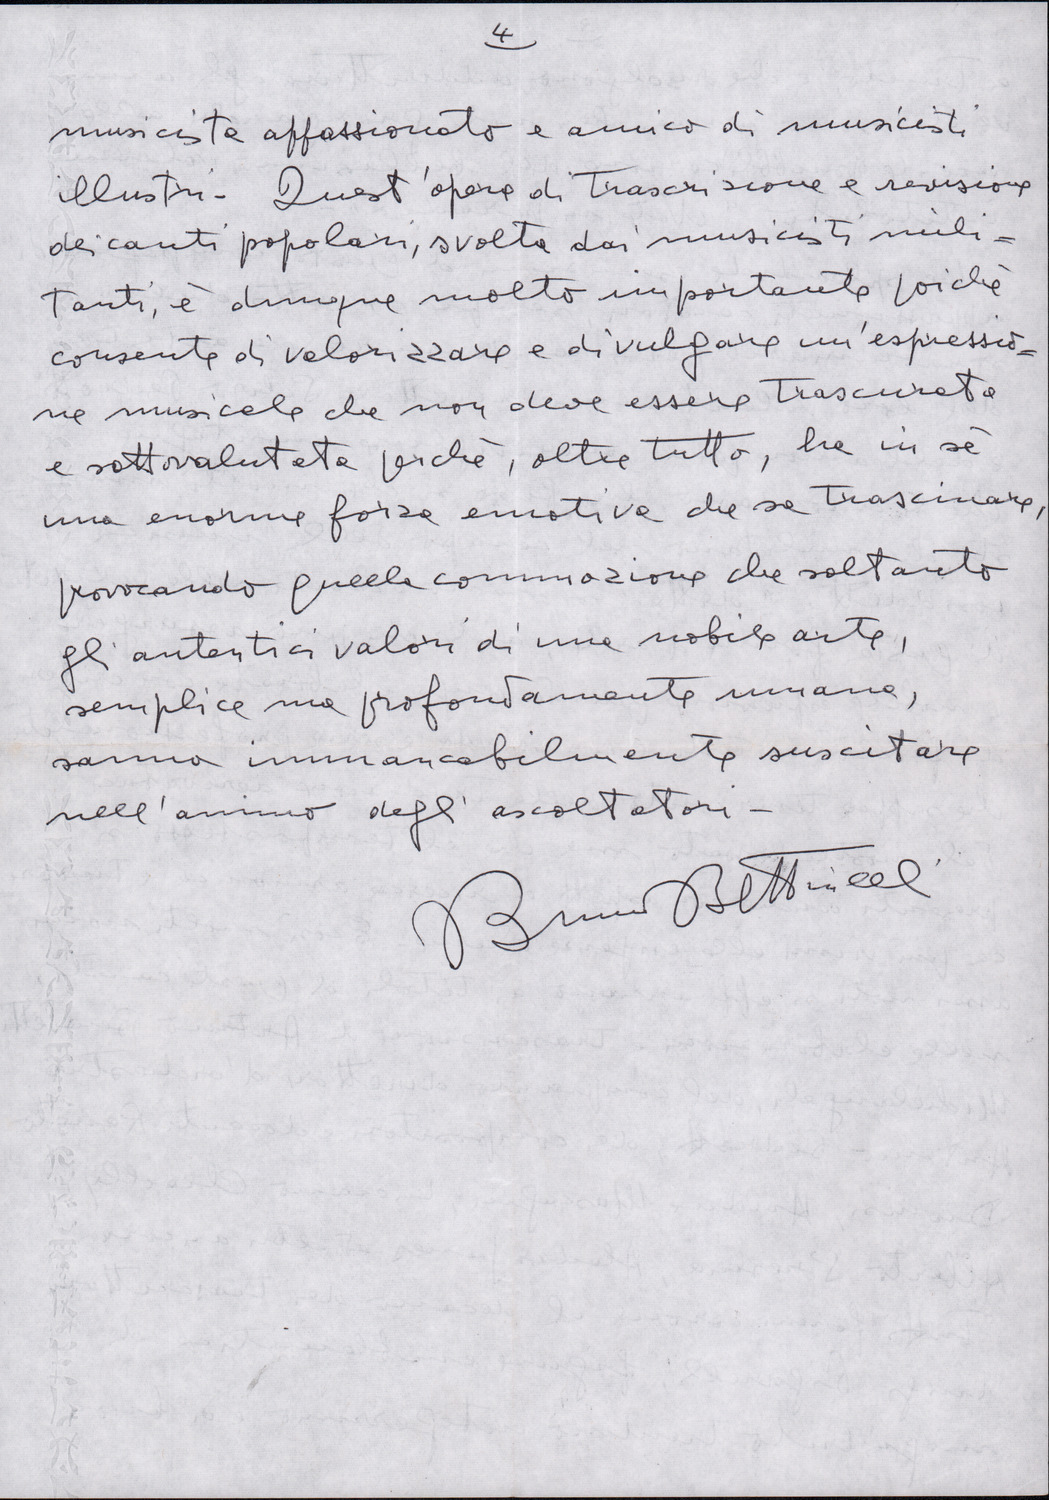 4
musicista appassionato e amico di musicisti
illustri - Quest'opera di trascrizione e revisione
dei canti popolari, svolta dai musicisti mili=
tanti, è dunque molto importante poichè
consente di valorizzare e divulgare un'espressio=
ne musicale che non deve essere trascurata
e sottovalutata perchè, oltre tutto, ha in sè
una enorme forza emotiva che sa trascinare,
provocando quella commozione che soltanto
gli autentici valori di una nobile arte,
semplice ma profondamente umana,
sanno immancabilmente suscitare
nell'animo degli ascoltatori -
Bruno Bettinelli